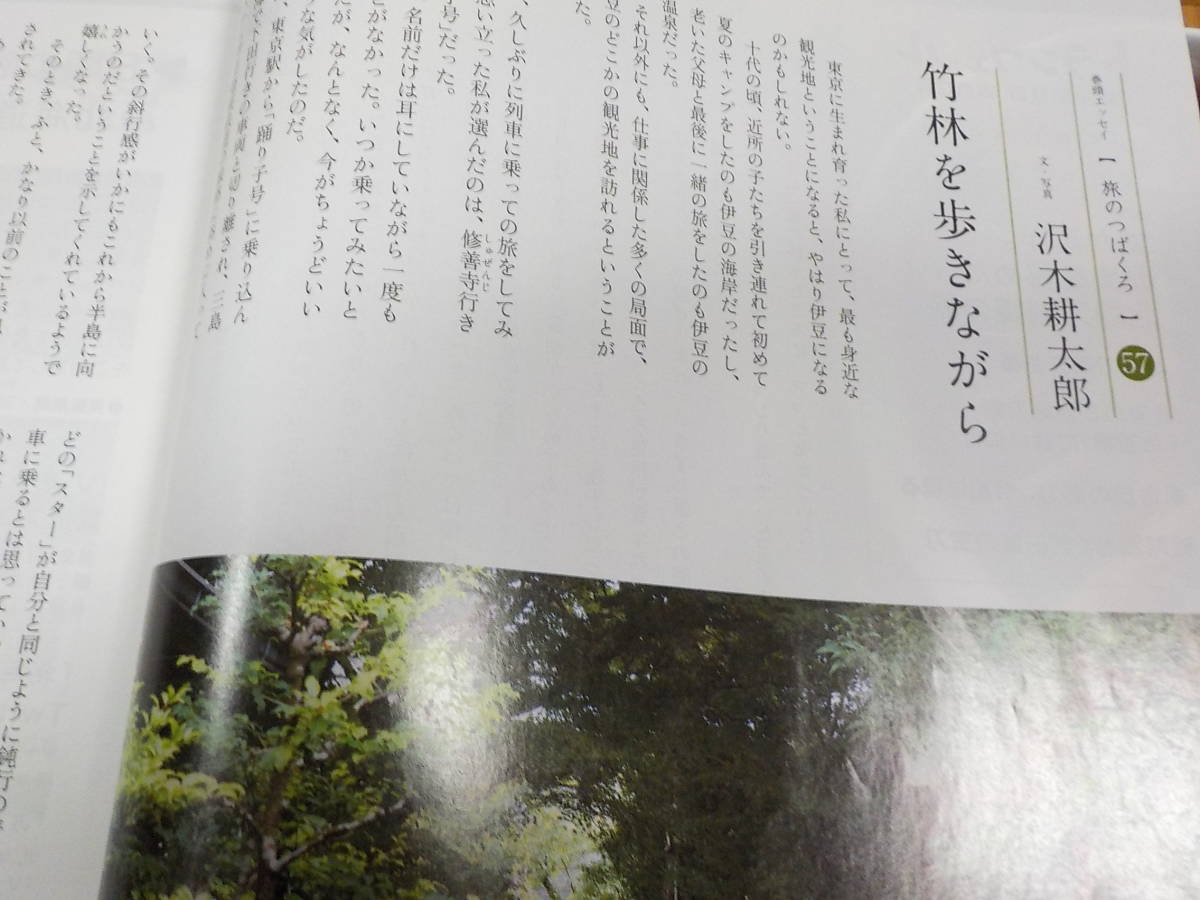 巻頭エッセイ【旅のつばくろ】57
文・写真 沢木耕太郎
竹林を歩きながら
東京に生まれ育った私にとって、最も身近な
観光地ということになると、やはり伊豆になる
のかもしれない。
十代の頃、近所の子たちを引き連れて初めて
夏のキャンプをしたのも伊豆の海岸だったし、
老いた父母と最後に一緒の旅をしたのも伊豆の
温泉だった。
それ以外にも、仕事に関係した多くの局面で、
豆のどこかの観光地を訪れるということが
た。
、久しぶりに列車に乗っての旅をしてみ
思い立った私が選んだのは、修善寺行き
号」だった。
名前だけは耳にしていながら一度も
とがなかった。いつか乗ってみたいと
だが、なんとなく、今がちょうどいい
うな気がしたのだ。
、東京駅から「踊り子号」に乗り込ん
で下田行きの車両と切り離され、三島
いく。その斜行感がいかにもこれから半島に向
かうのだということを示してくれているようで
嬉しくなった。
そのとき、ふと、かなり以前のことが
されてきた。
どの「スター」が自分と同じように鈍行の
車に乗るとは思ってい